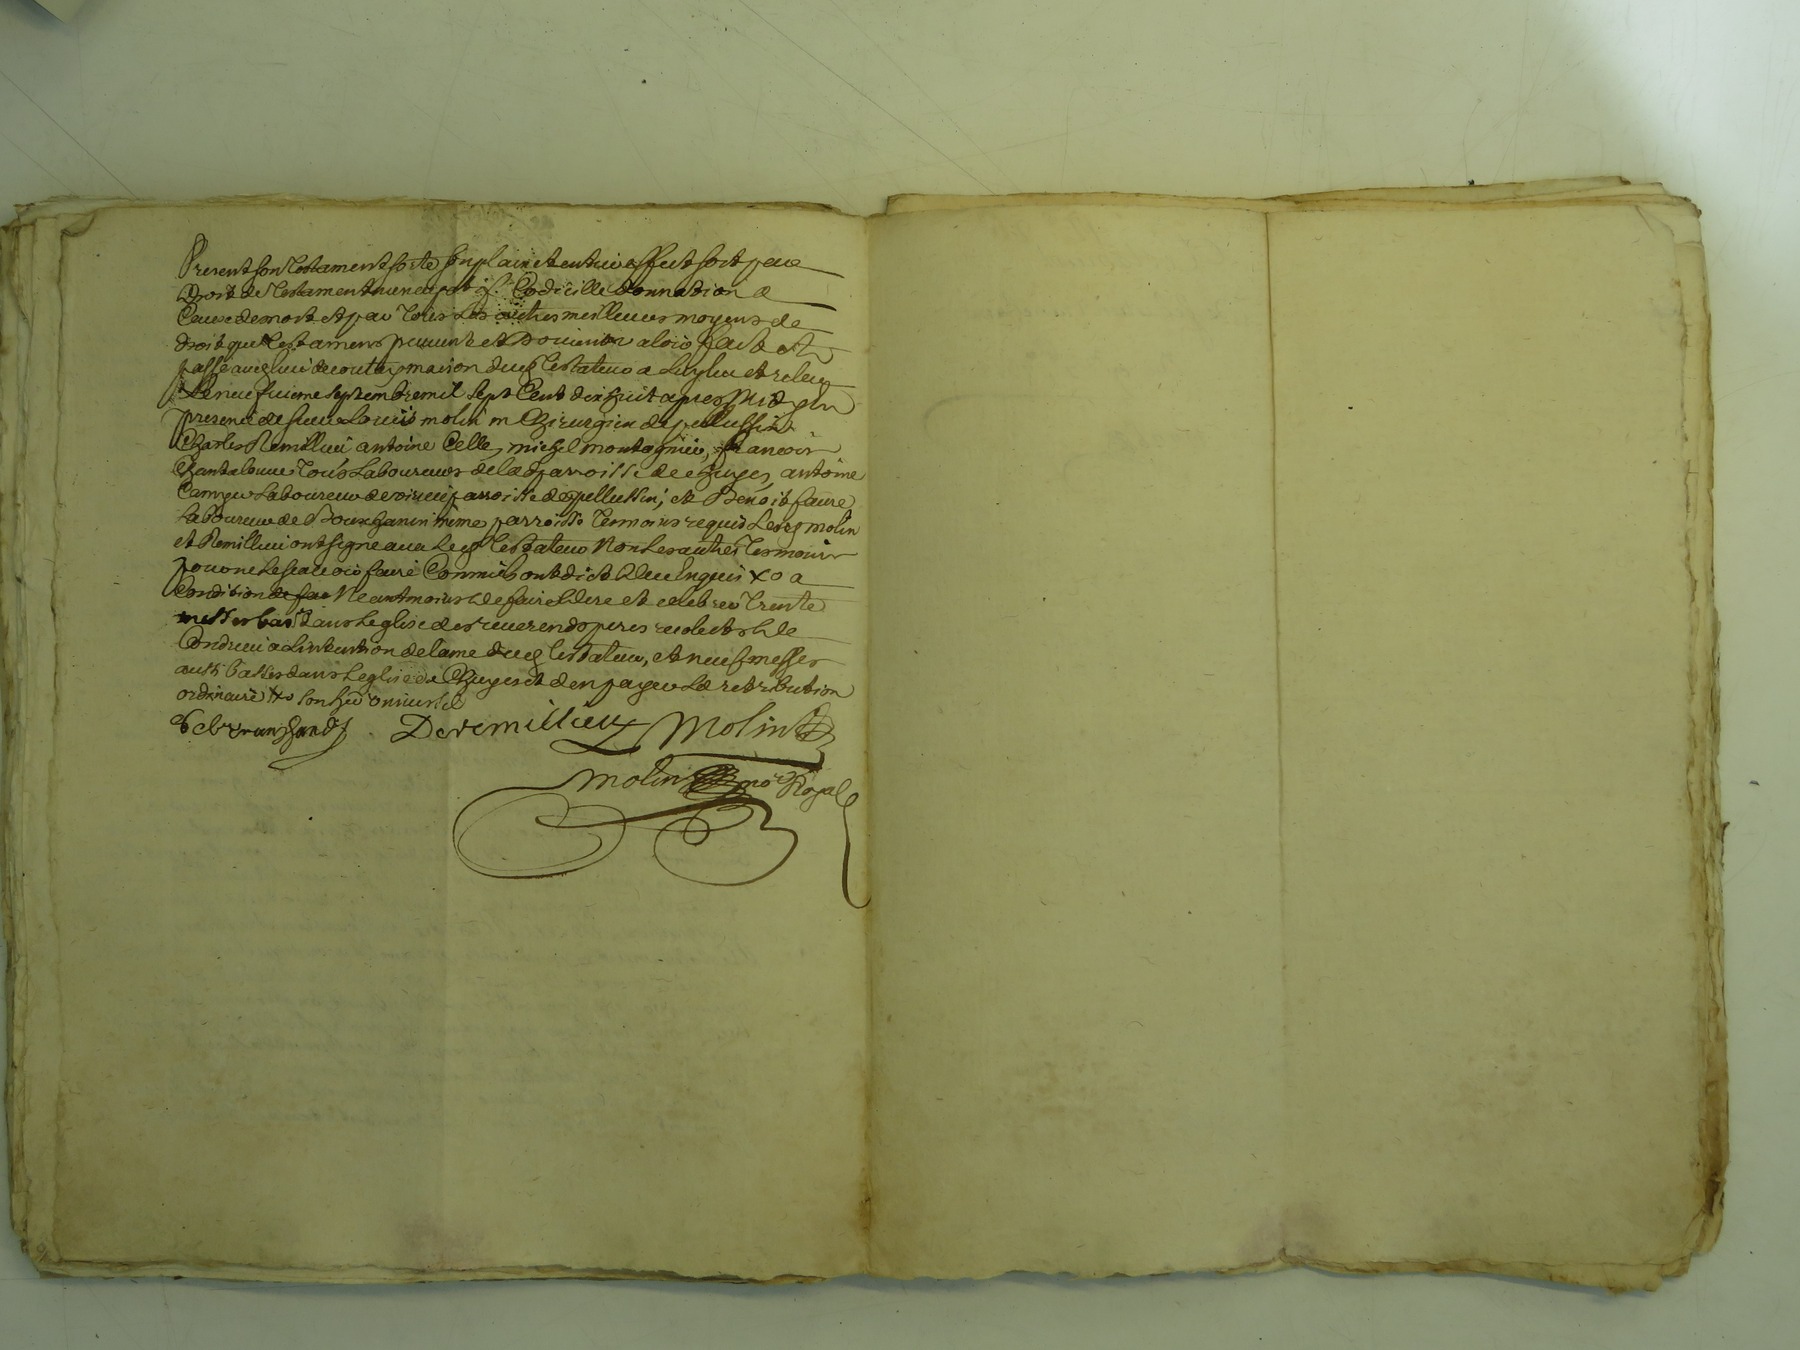 Present son testament sorte son plain et entier effect soit par
Droit de testament nuncupatif Codicille donnation a
Cause de mort et par tous les autres meilleurs moyens de
droit que testamens peuvent et doivent valoir fait et
passé au lieu de maison dud testateur a et releu
Le neufvieme septembre mil sept Cent dix huit apres Midy en
presence de sieur Louis molin m Chirurgien de pellussin
Charles Remillieu antoine Celle, michel montagnier, francois
Chantelouve tous Laboureurs de lad parroisse de Chuyes, antoine
Laboureur de parroisse de pellussin, et Benoit faure
Laboureur de même parroisse Temoins requis Lesd molin
et Remillieu ont signé avec led testateur Non les autres Temoins
pour ne le scavoir faire Comme ils ont dict de ce Enquis xo a
Condition de fai Neantmoins de faire dire et celebrer Trente
messes basses dans Leglise des reverends peres recolects de
Condrieu a Lintention de lame dud testateur, et neuf messes
aussi basses dans Leglise de Chuyes et den payer La retribution
ordinaire xo son her universel
Deremilieu Molin
molin no Royal